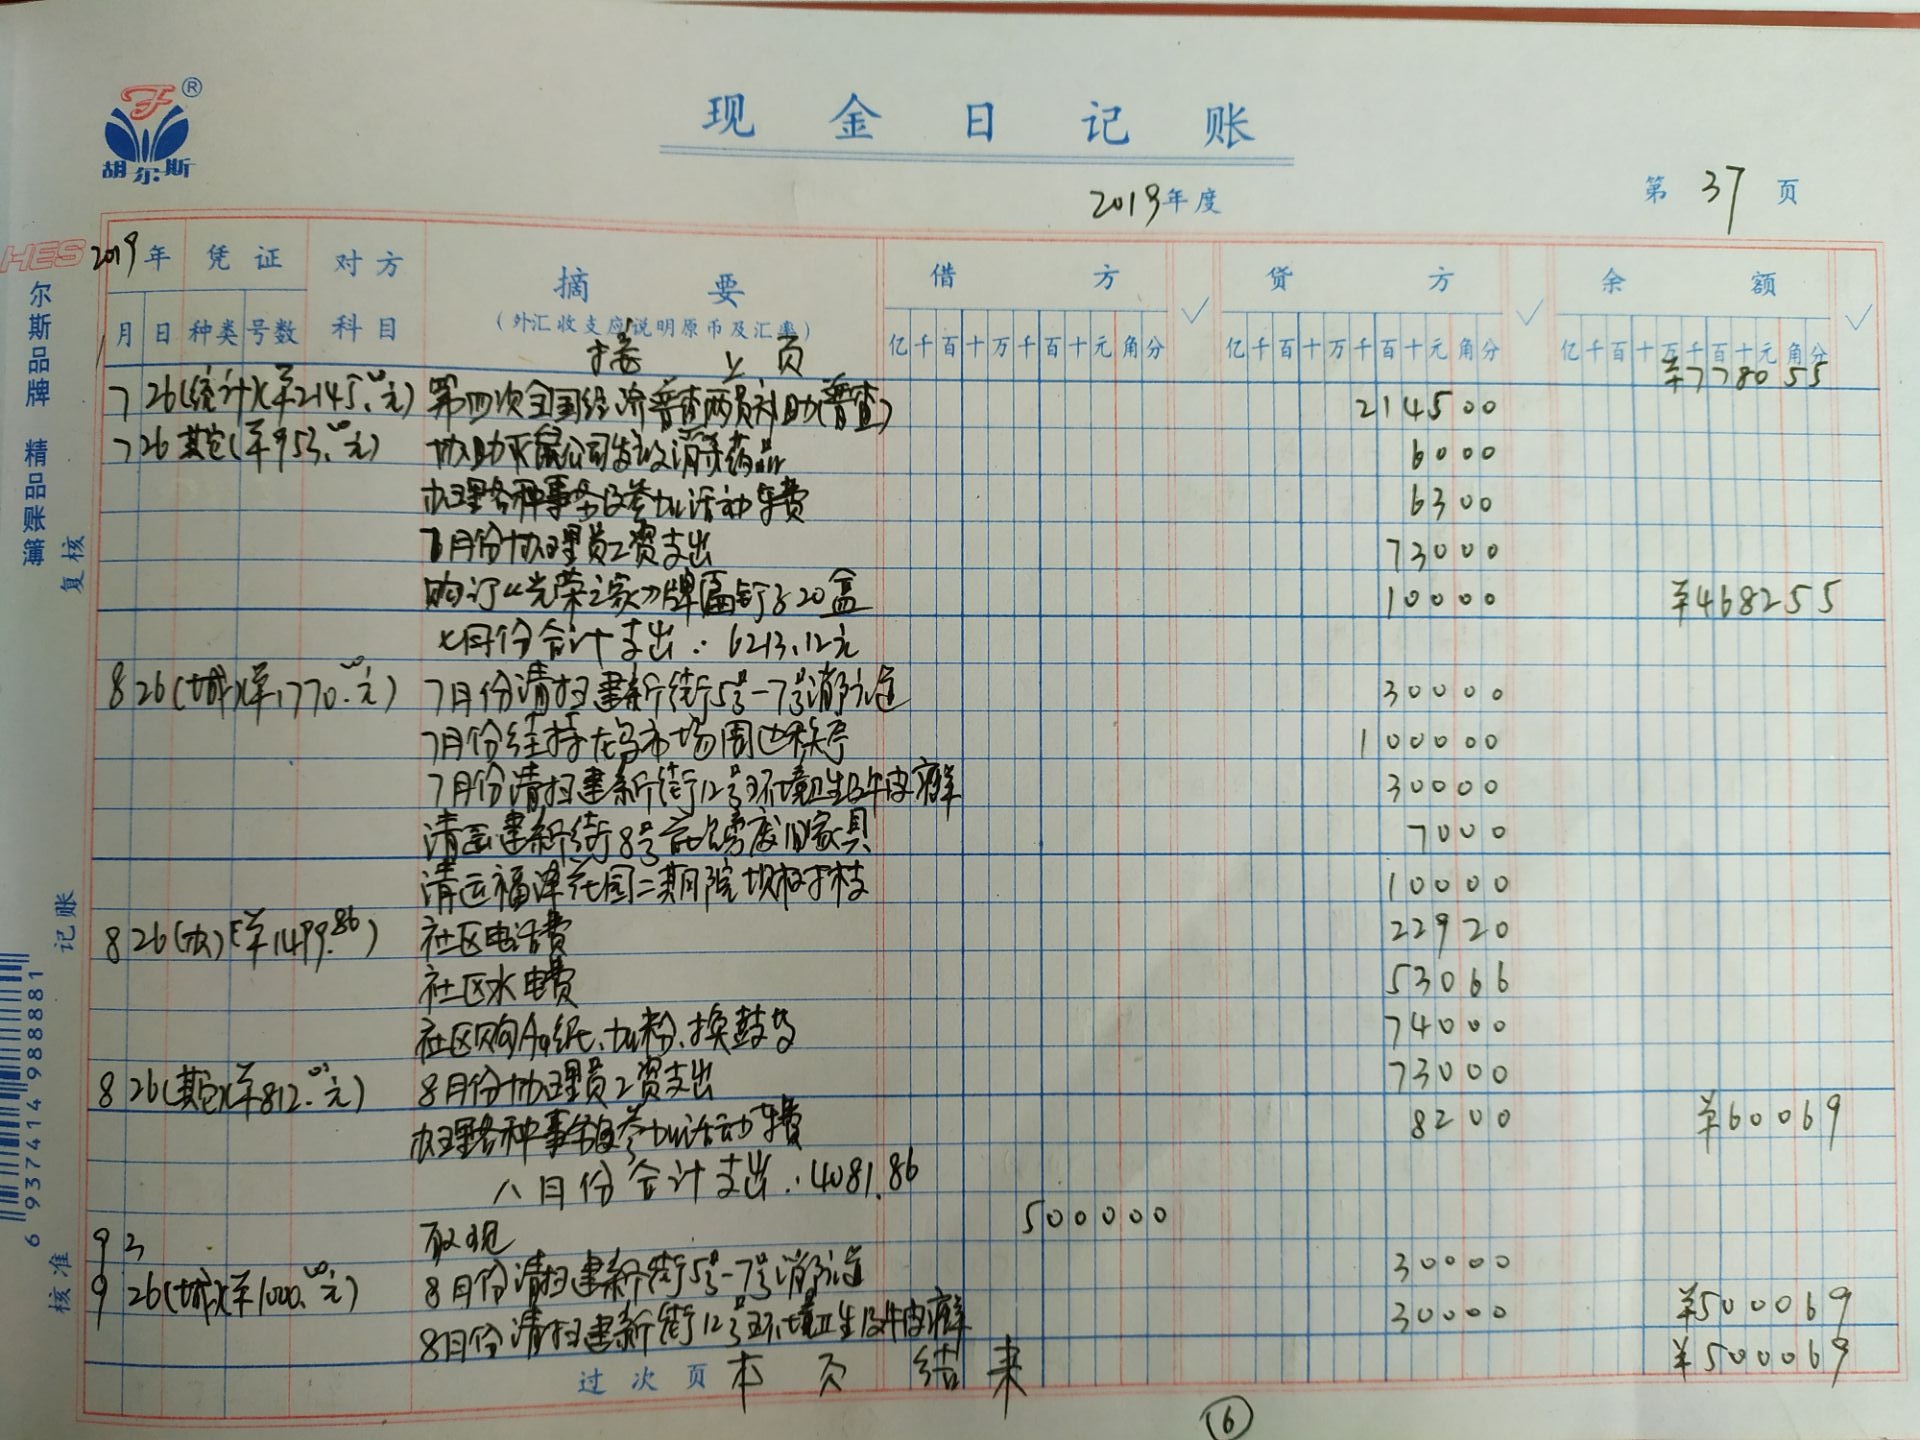 胡尔斯
现金日记账
2019年度
第 37 页
HES
尔斯品牌 精品账簿
复核
记账
核准
6 937414 988881
2019年 凭证 对方 摘要 借方 ✓ 贷方 ✓ 余额 ✓
月 日 种类 号数 科目 (外汇收支应说明原币及汇率) 亿千百十万千百十元角分 亿千百十万千百十元角分 亿千百十万千百十元角分
接上页 ¥778055
7 26 (统计)(¥2145.00元) 第四次全国经济普查两员补助(普查) 214500
7 26 其它(¥953.00元) 协助灭鼠公司发放消杀药品 6000
办理各种事务及参加活动车费 6300
7月份协理员工资支出 73000
购订《光荣之家》牌匾钉子20盒 10000 ¥468255
七月份合计支出:6213.12元
8 26 (城)(¥1770.00元) 7月份清扫建新街5号-7号消防道 30000
7月份维持花鸟市场周边秩序 100000
7月份清扫建新街12号环境卫生及牛皮癣 30000
清运建新街8号 废旧家具 7000
清运福泽花园二期院坝树枝 10000
8 26 (办)(¥1499.86) 社区电话费 22920
社区水电费 53066
社区购A4纸、加粉、换鼓等 74000
8 26 (其它)(¥812.00元) 8月份协理员工资支出 73000
办理各种事务及参加活动车费 8200 ¥60069
八月份合计支出:4081.86
9 3 取现 500000
9 26 (城)(¥1000.00元) 8月份清扫建新街5号-7号消防道 30000
8月份清扫建新街12号环境卫生及牛皮癣 30000 ¥500069
过次页 本页结束 ¥500069
⑥